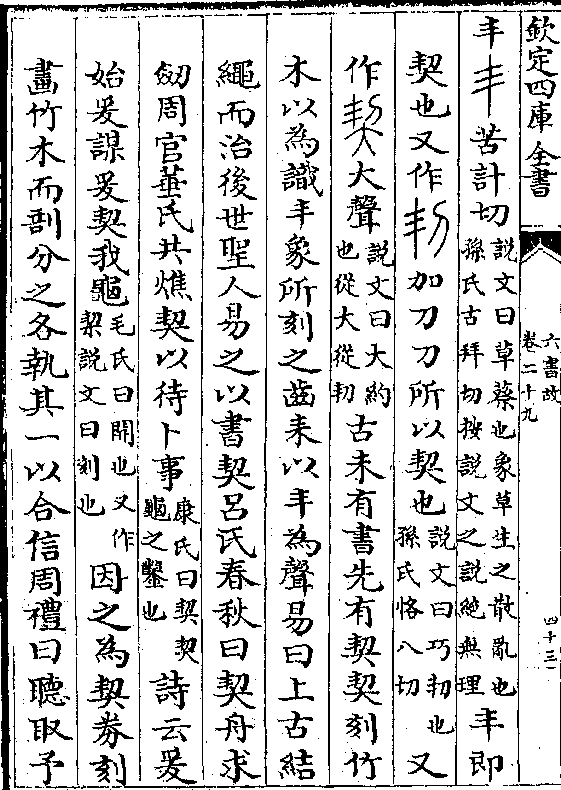 欽定四庫全書
六書故
卷二十九
四十三
丯丯苦計切説文曰草蔡也象草生之散亂也
孫氏古拜切按説文之説絶無理丯即
契也又作㓞加刀刀所以契也説文曰巧㓞也
孫氏恪八切又
作契大聲説文曰大約
也從大從㓞古未有書先有契契刻竹
木以為識丯象所刻之齒耒以丯為聲易曰上古結
繩而治後世聖人易之以書契吕氏春秋曰契舟求
劒周官菙氏共燋契以待卜事康氏曰契契
龜之鑿也詩云爰
始爰謀爰契我龜毛氏曰開也又作
栔説文曰刻也因之為契券刻
畵竹木而剖分之各執其一以合信周禮曰聽取予